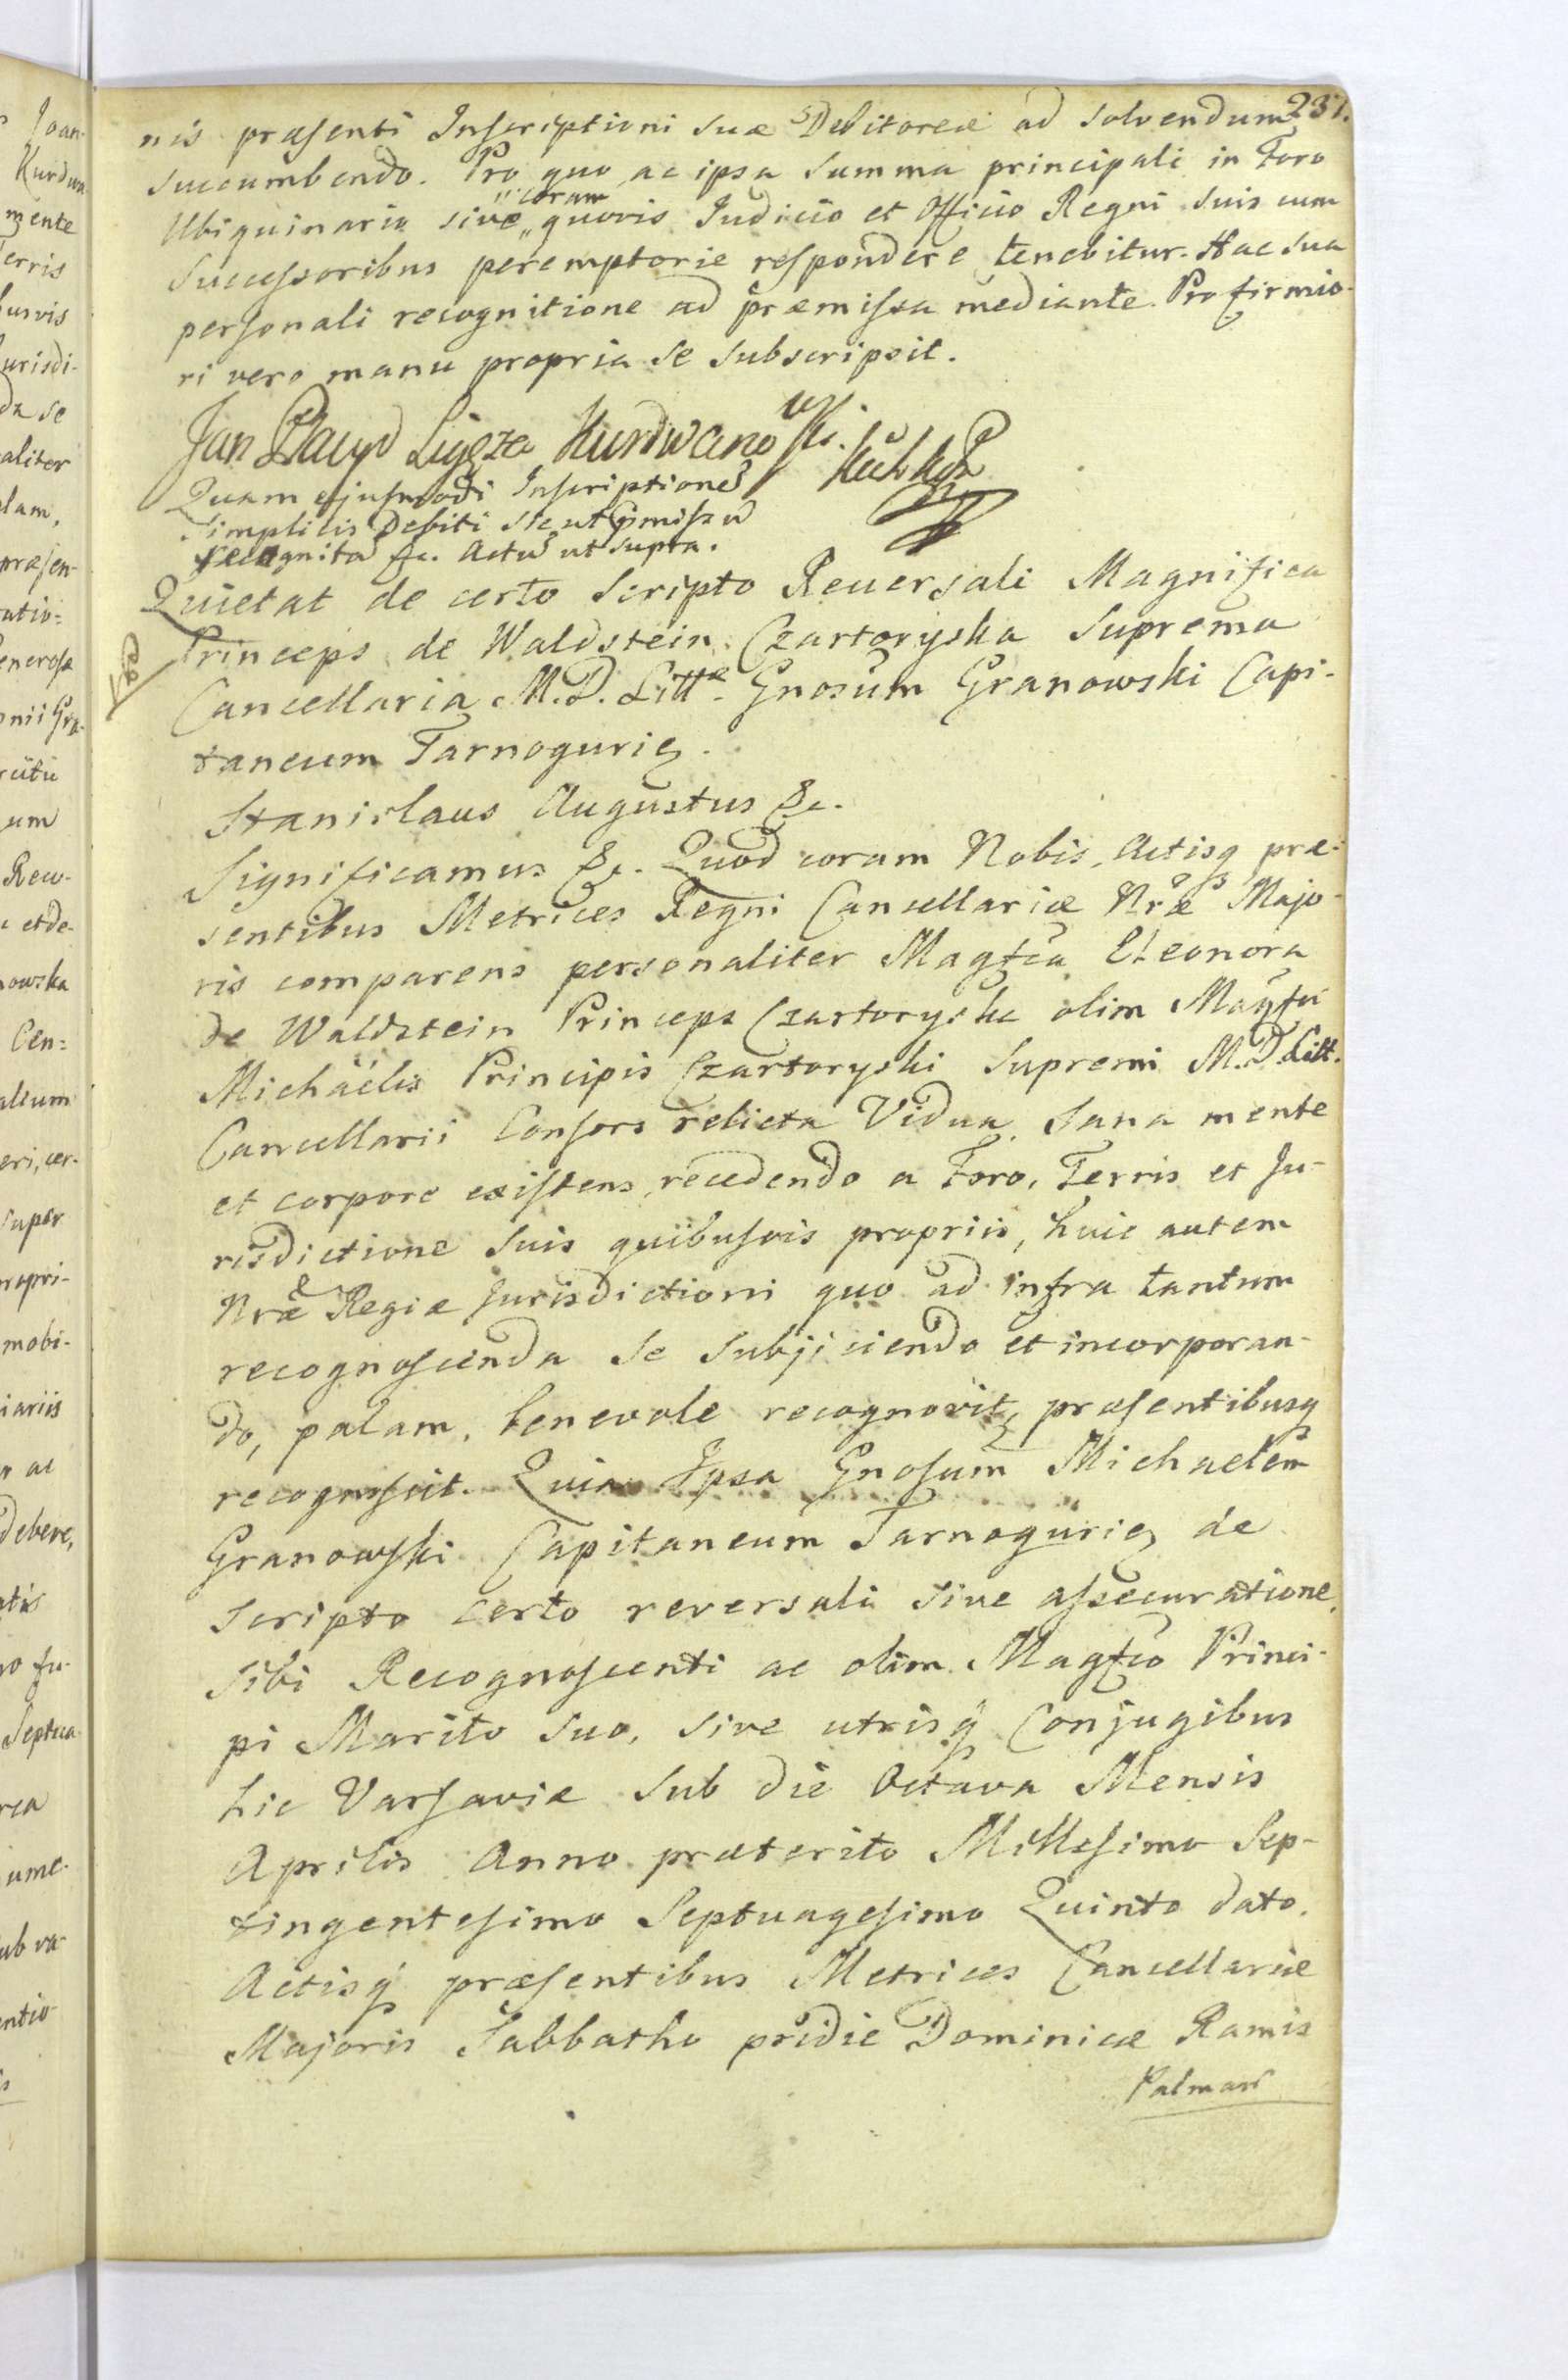 237.
nis præsenti Inscriptioni suæ Debitoreæ ad solvendum
succumbendo. Pro quo ac ipsa summa principali in Foro
coram
Ubiquinario sive quovis Judicio et Officio Regni suis cum
Successoribus peremptorie respondere tenebitur. Hac sua
personali recognitione ad præmissa mediante. Pro firmio-
ri vero manu propria se subscripsit.
Jan Ligęza Kurdwanowski.
Quam ejusmodi Inscriptione
simplicis Debiti sicut pmissu
recognita &c. Actu ut supra.
Quietat de certo Scripto Reversali Magnifica
Princeps de Waldstein Czartoryska Suprema
Cancellaria M.D. Littæ. Gnosum Granowski Capi-
taneum Tarnogurię.
Stanislaus Augustus &c.
Significamus &c. Quod coram Nobis, Actisq præ-
sentibus Metrices Regni Cancellariæ Nræ Majo-
ris comparens personaliter Magfca Eleonora
de Waldstein Princeps Czartoryska olim Magfci
Michaëlis Principis Czartoryski Supremi M.D. Litt.
Cancellarii Consors relicta Vidua. Sana mente
et corpore existens, recedendo a Foro, Terris et Ju-
risdictione suis quibusvis propriis, huic autem
Nræ Regiæ Jurisdictioni quo ad infra tantum
recognoscenda se subjiciendo et incorporan-
do, palam, benevole recognovit, præsentibusq
recognoscit. Quia Ipsa Gnosum Michaelem
Granowski Capitaneum Tarnogurię de
scripto certo reversali sive assecuratione,
sibi Recognoscenti ac olim Magfco Princi-
pi Marito suo, sive utrisq Conjugibus
hic Varsaviæ sub die Octava Mensis
Aprilis Anno præterito Millesimo Sep-
tingentesimo Septuagesimo Quinto dato.
Actisq præsentibus Metrices Cancellariæ
Majoris Sabbatho pridie Dominicæ Ramis
Palmar